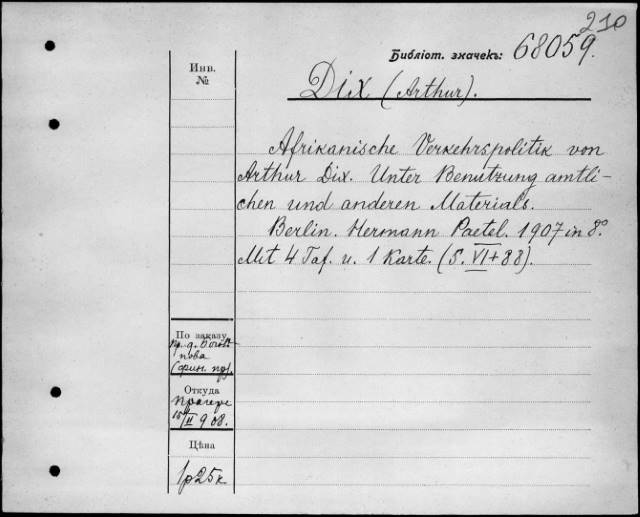 210
Библіот. значекъ: 68059.
Инв.
№
Dix (Arthur).
Afrikanische Verkehrspolitik von
Arthur Dix. Unter Benutzung amtli-
chen und anderen Materials.
Berlin. Hermann Paetel. 1907 in 8°.
Mit 4 Taf. u. 1 Karte. (S. VI + 88).
По заказу
пр. д.
Откуда
15 II 908.
Цѣна
1р25к